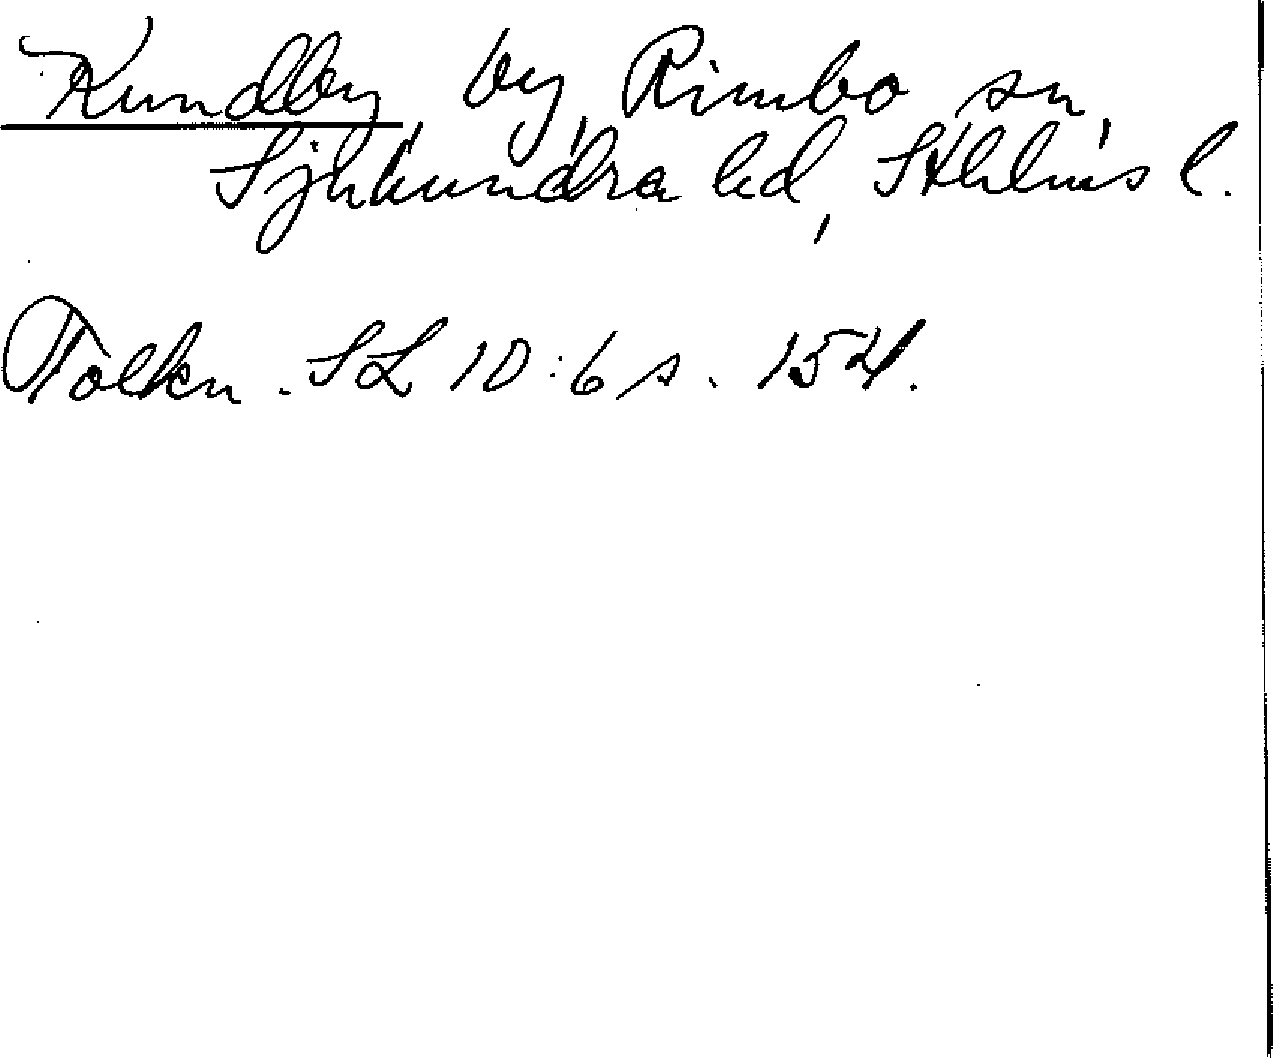 Kundby by, Rimbo sn,
Sjuhundra hd, Sthlms l.
Tolkn. SL 10:6 s. 154.